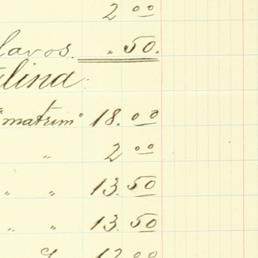 2 00
lavos. .50.
lina.
"matrim" 18.00
" 2 00
" " 13.50
" " 13.50
12 00